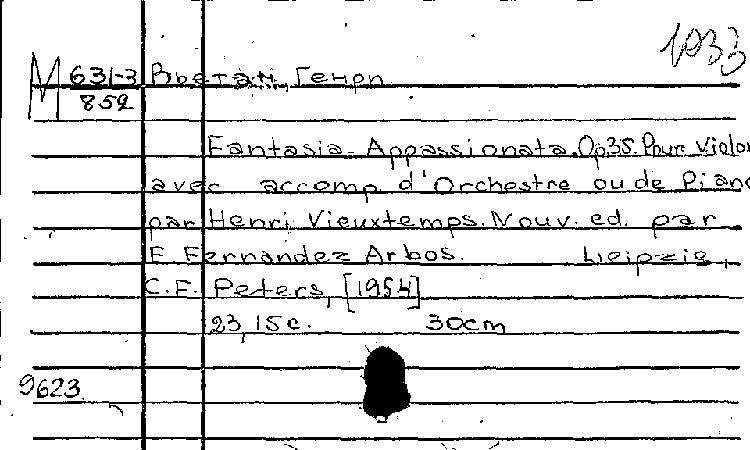 1033
М 631-3 Вьетам, Генри
852
Fantasia-Appassionata. Op35. Pour Violon
avec accomp d'Orchestre ou de Piano
par Henri Vieuxtemps. Nouv. ed. par
E Fernandez Arbos. Leipzig,
C.F. Peters, [1954]
23, 15 c. 30cm
9623